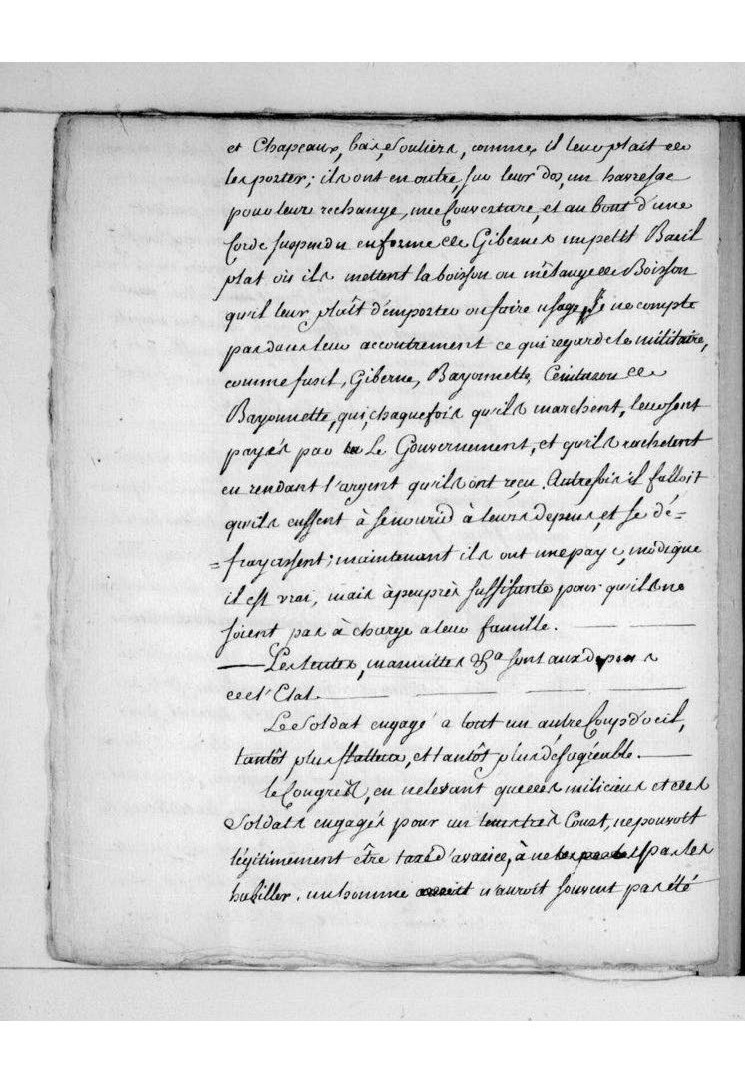 et Chapeaux, bas, Souliers, comme il leur plait de
les porter; ils ont en outre, sur leur dos, un havresac
pour leur rechange, une Couverture, et au bout d'une
Corde suspendu en forme de Gibernes un petit Baril
plat où ils mettent la boisson ou mêlange de Boisson
qu'il leur plaît d'emporter ou faire usage. Je ne compte
pas dans leur accoutrement ce qui regarde le militaire,
comme fusil, Giberne, Bayonnette, Ceinturon de
Bayonnette, qui, chaque fois qu'ils marchent, leur sont
payés par Le Gouvernement, et qu'ils rachetent
en rendant l'argent qu'ils ont reçu. Autrefois il falloit
qu'ils eussent à se nourir à leurs depens, et se dé=
=frayassent; maintenant ils ont une paye, modique
il est vrai, mais àpeuprès suffisante pour qu'ils ne
soient pas à charge a leur famille.
Les tentes, marmittes &ca sont aux depens
de l'Etat.
Le Soldat engagé a tout un autre Coup d'oeil,
tantôt plus flatteur, et tantôt plus désagréable.
le Congrès, en ne levant que des miliciens et des
Soldats engagés pour un tems très Court, ne pouvoit
légitimement être taxé d'avarice, à ne pas les
habiller. un homme n'auroit souvent pas été